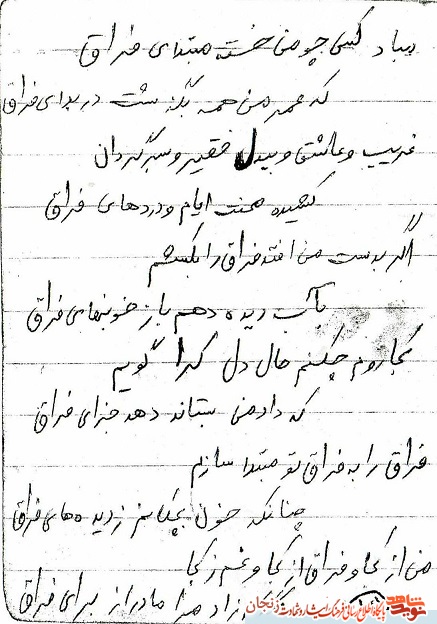 مباد کسی چو من خسته مبتلای فراق
که عمر من همه بگذشت در بلای فراق
غریب و عاشق و بیدل فقیر و سرگردان
کشیده محنت ایام و دردهای فراق
اگر بدست من افتد فراق را بکشم
بآب دیده دهم باز خونبهای فراق
کجا روم چکنم حال دل کرا گویم
که داد من بستاند دهد جزای فراق
فراق را به فراق تو مبتلا سازم
چنانکه خون بچکانم ز دیده های فراق
من از کجا و فراق از کجا و غم ز کجا
زاد مرا مادر از برای فراق
نوید شاهد پایگاه اطلاع رسانی فرهنگ ایثار و شهادت زنجان